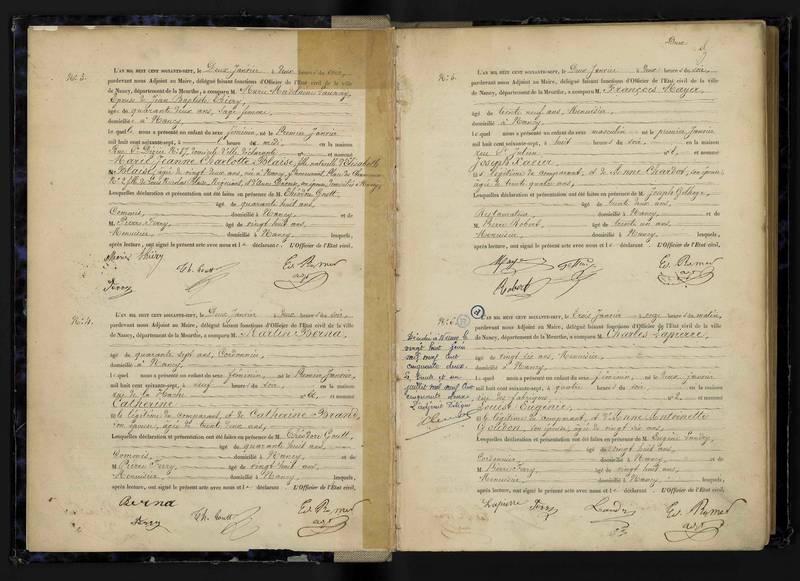 No. 3.
L'AN MIL HUIT CENT SOIXANTE-SEPT, le Deux Janvier à Deux heures du soir,
pardevant nous Adjoint au Maire, délégué faisant fonctions d'Officier de l'Etat civil de la ville
de Nancy, département de la Meurthe, a comparu M. Marie Madelaine
Epouse de Jean Baptiste Thiéry
âgée de quarante deux ans, Sage femme,
domiciliée à Nancy
Laquelle nous a présenté un enfant du sexe féminin, né le Premier Janvier
mil huit cent soixante-sept, à heures du midi en la maison
et nommé
Marie Jeanne Charlotte Blaise, fille naturelle d'Elisabeth
Blaise, âgée de vingt deux ans, née à Nancy
Lesquelles déclaration et présentation ont été faites en présence de M. Théodore Goutt
âgé de quarante huit ans,
Commis, domicilié à Nancy et de
M. Pierre Ferry âgé de vingt huit ans,
Menuisier domicilié à Nancy lesquels,
après lecture, ont signé le présent acte avec nous et la déclarante. L'Officier de l'Etat civil,
Thiéry
Th. Goutt
Ferry
No. 4.
L'AN MIL HUIT CENT SOIXANTE-SEPT, le Deux Janvier à Deux heures du soir,
pardevant nous Adjoint au Maire, délégué faisant fonctions d'Officier de l'Etat civil de la ville
de Nancy, département de la Meurthe, a comparu M. Martin Berna
âgé de quarante sept ans, Cordonnier,
domicilié à Nancy
Lequel nous a présenté un enfant du sexe féminin, né le Premier Janvier,
mil huit cent soixante-sept, à neuf heures du soir, en la maison
rue de la Hache No. et nommé
Catherine
fille légitime du comparant, et de Catherine Brand,
son épouse, âgée de trente deux ans,
Lesquelles déclaration et présentation ont été faites en présence de M. Théodore Goutt
âgé de quarante huit ans,
Commis domicilié à Nancy et de
M. Pierre Ferry âgé de vingt huit ans,
Menuisier domicilié à Nancy lesquels,
après lecture, ont signé le présent acte avec nous et le déclarant. L'Officier de l'Etat civil,
Berna
Ferry
Th. Goutt
Deux
No. 5.
L'AN MIL HUIT CENT SOIXANTE-SEPT, le Deux Janvier à Deux heures du soir,
pardevant nous Adjoint au Maire, délégué faisant fonctions d'Officier de l'Etat civil de la ville
de Nancy, département de la Meurthe, a comparu M. François Mayer
âgé de trente neuf ans, Menuisier
domicilié à Nancy
Lequel nous a présenté un enfant du sexe masculin né le premier Janvier
mil huit cent soixante-sept, à huit heures du soir en la maison
rue St Julien et nommé
Joseph Xavier
fils légitime du comparant, et de Anne Chardot, son épouse
âgée de trente quatre ans,
Lesquelles déclaration et présentation ont été faites en présence de M. Joseph
âgé de trente deux ans,
domicilié à Nancy et de
M. Pierre Robert, âgé de trente un ans,
Menuisier domicilié à Nancy lesquels,
après lecture, ont signé le présent acte avec nous et le déclarant. L'Officier de l'Etat civil,
Mayer
Robert
L'AN MIL HUIT CENT SOIXANTE-SEPT, le Trois Janvier à onze heures du matin,
pardevant nous Adjoint au Maire, délégué faisant fonctions d'Officier de l'Etat civil de la ville
de Nancy, département de la Meurthe, a comparu M. Charles Lapierre
âgé de vingt six ans, Menuisier
domicilié à Nancy
Lequel nous a présenté un enfant du sexe féminin, né le deux janvier
mil huit cent soixante-sept, à quatre heures du soir, en la maison
rue des fabriques, No. 2 et nommé
Louise Eugénie,
fille légitime du comparant, et d'Anne Antoinette
son épouse, âgée de vingt six ans
Lesquelles déclaration et présentation ont été faites en présence de M. Eugène
âgé de vingt huit ans,
Cordonnier domicilié à Nancy et de
M. Pierre Ferry, âgé de vingt huit ans,
Menuisier domicilié à Nancy lesquels,
après lecture, ont signé le présent acte avec nous et le déclarant. L'Officier de l'Etat civil,
Lapierre
Ferry
Décédée à
vingt huit juin
mil neuf cent
cinquante deux.
Le trente et un
juillet mil neuf cent
cinquante deux
L'adjoint Délégué